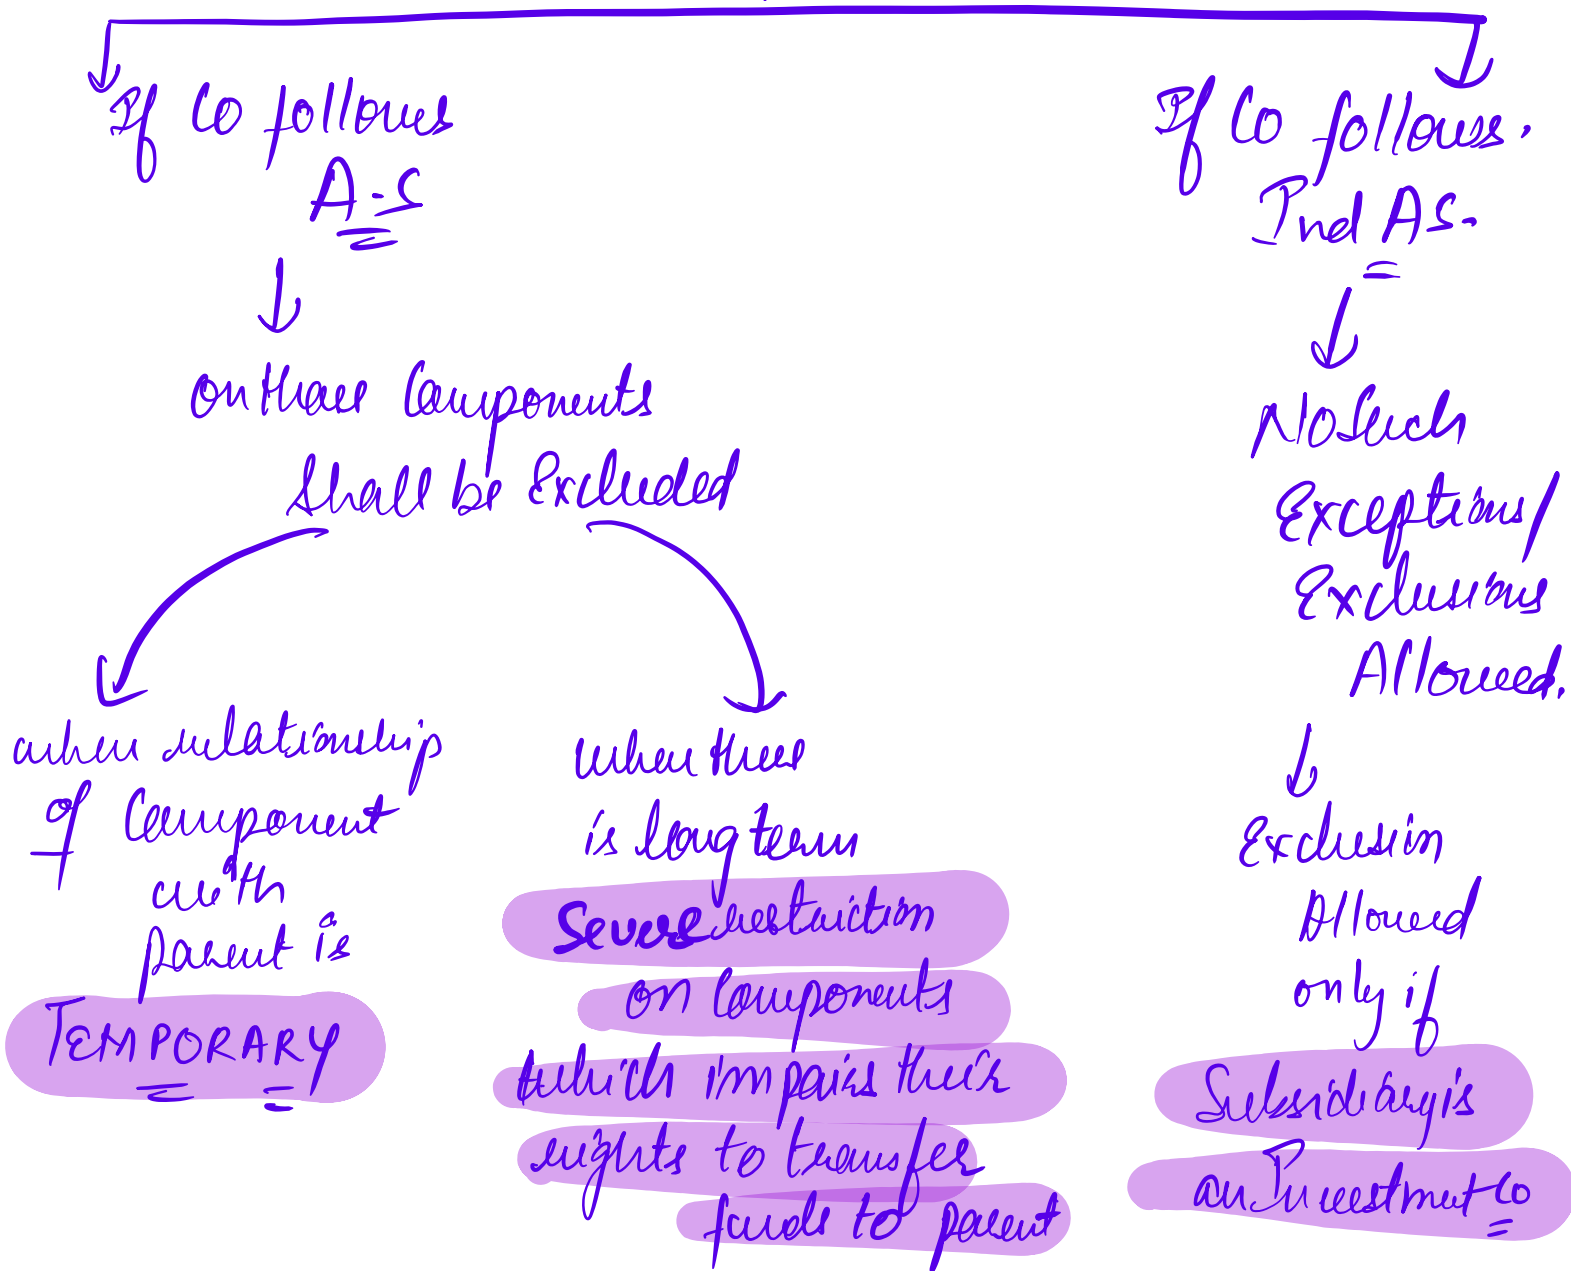 If Co follows
A-S
on those Components
Shall be Excluded
when relationship
of Component
with
parent is
TEMPORARY
when there
is long term
Severe restriction
on Components
which impairs their
rights to transfer
funds to parent
If Co follows.
Ind AS.
No Such
Exceptions/
Exclusions
Allowed.
Exclusion
Allowed
only if
Subsidiary is
an Investment Co